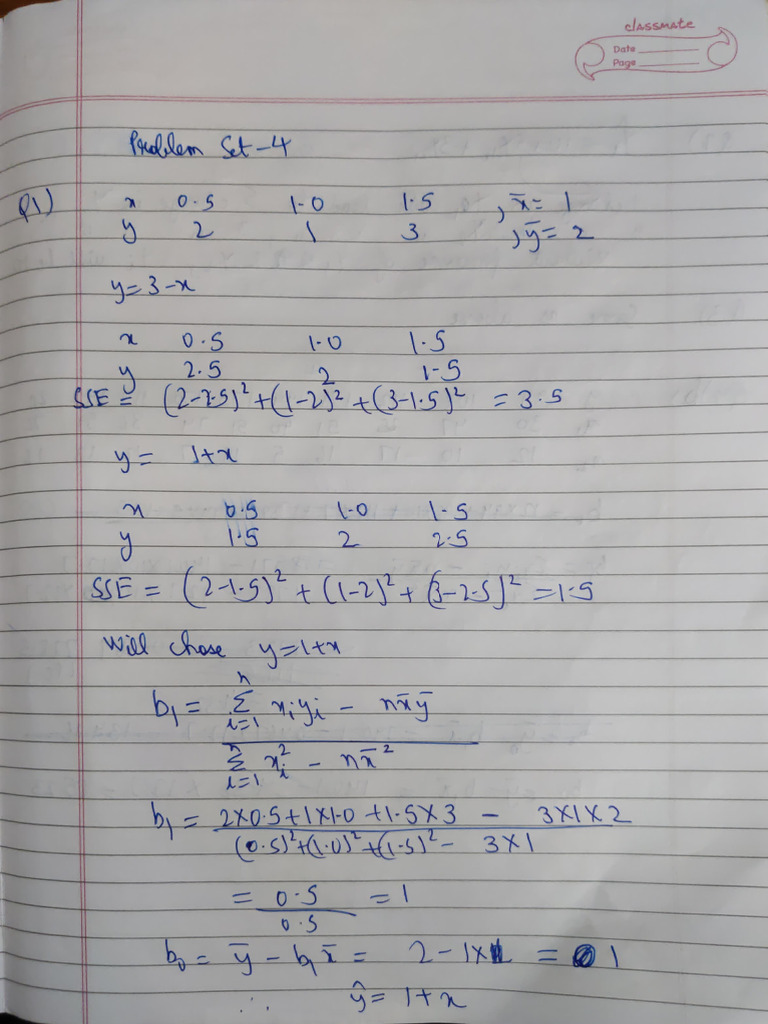 classmate
Date
Page
Problem Set-4
Q1) x 0.5 1.0 1.5 , x̄ = 1
y 2 1 3 , ȳ = 2
y = 3-x
x 0.5 1.0 1.5
y 2.5 2 1.5
SSE = (2-2.5)² + (1-2)² + (3-1.5)² = 3.5
y = 1+x
x 0.5 1.0 1.5
y 1.5 2 2.5
SSE = (2-1.5)² + (1-2)² + (3-2.5)² = 1.5
Will chose y=1+x
b₁ = Σⁿᵢ₌₁ xᵢyᵢ - nx̄ȳ
Σⁿᵢ₌₁ xᵢ² - nx̄²
b₁ = 2×0.5+1×1.0+1.5×3 - 3×1×2
(0.5)²+(1.0)²+(1.5)² - 3×1
= 0.5 = 1
0.5
b₀ = ȳ - b₁x̄ = 2-1×1 = 1
∴ ŷ = 1+x